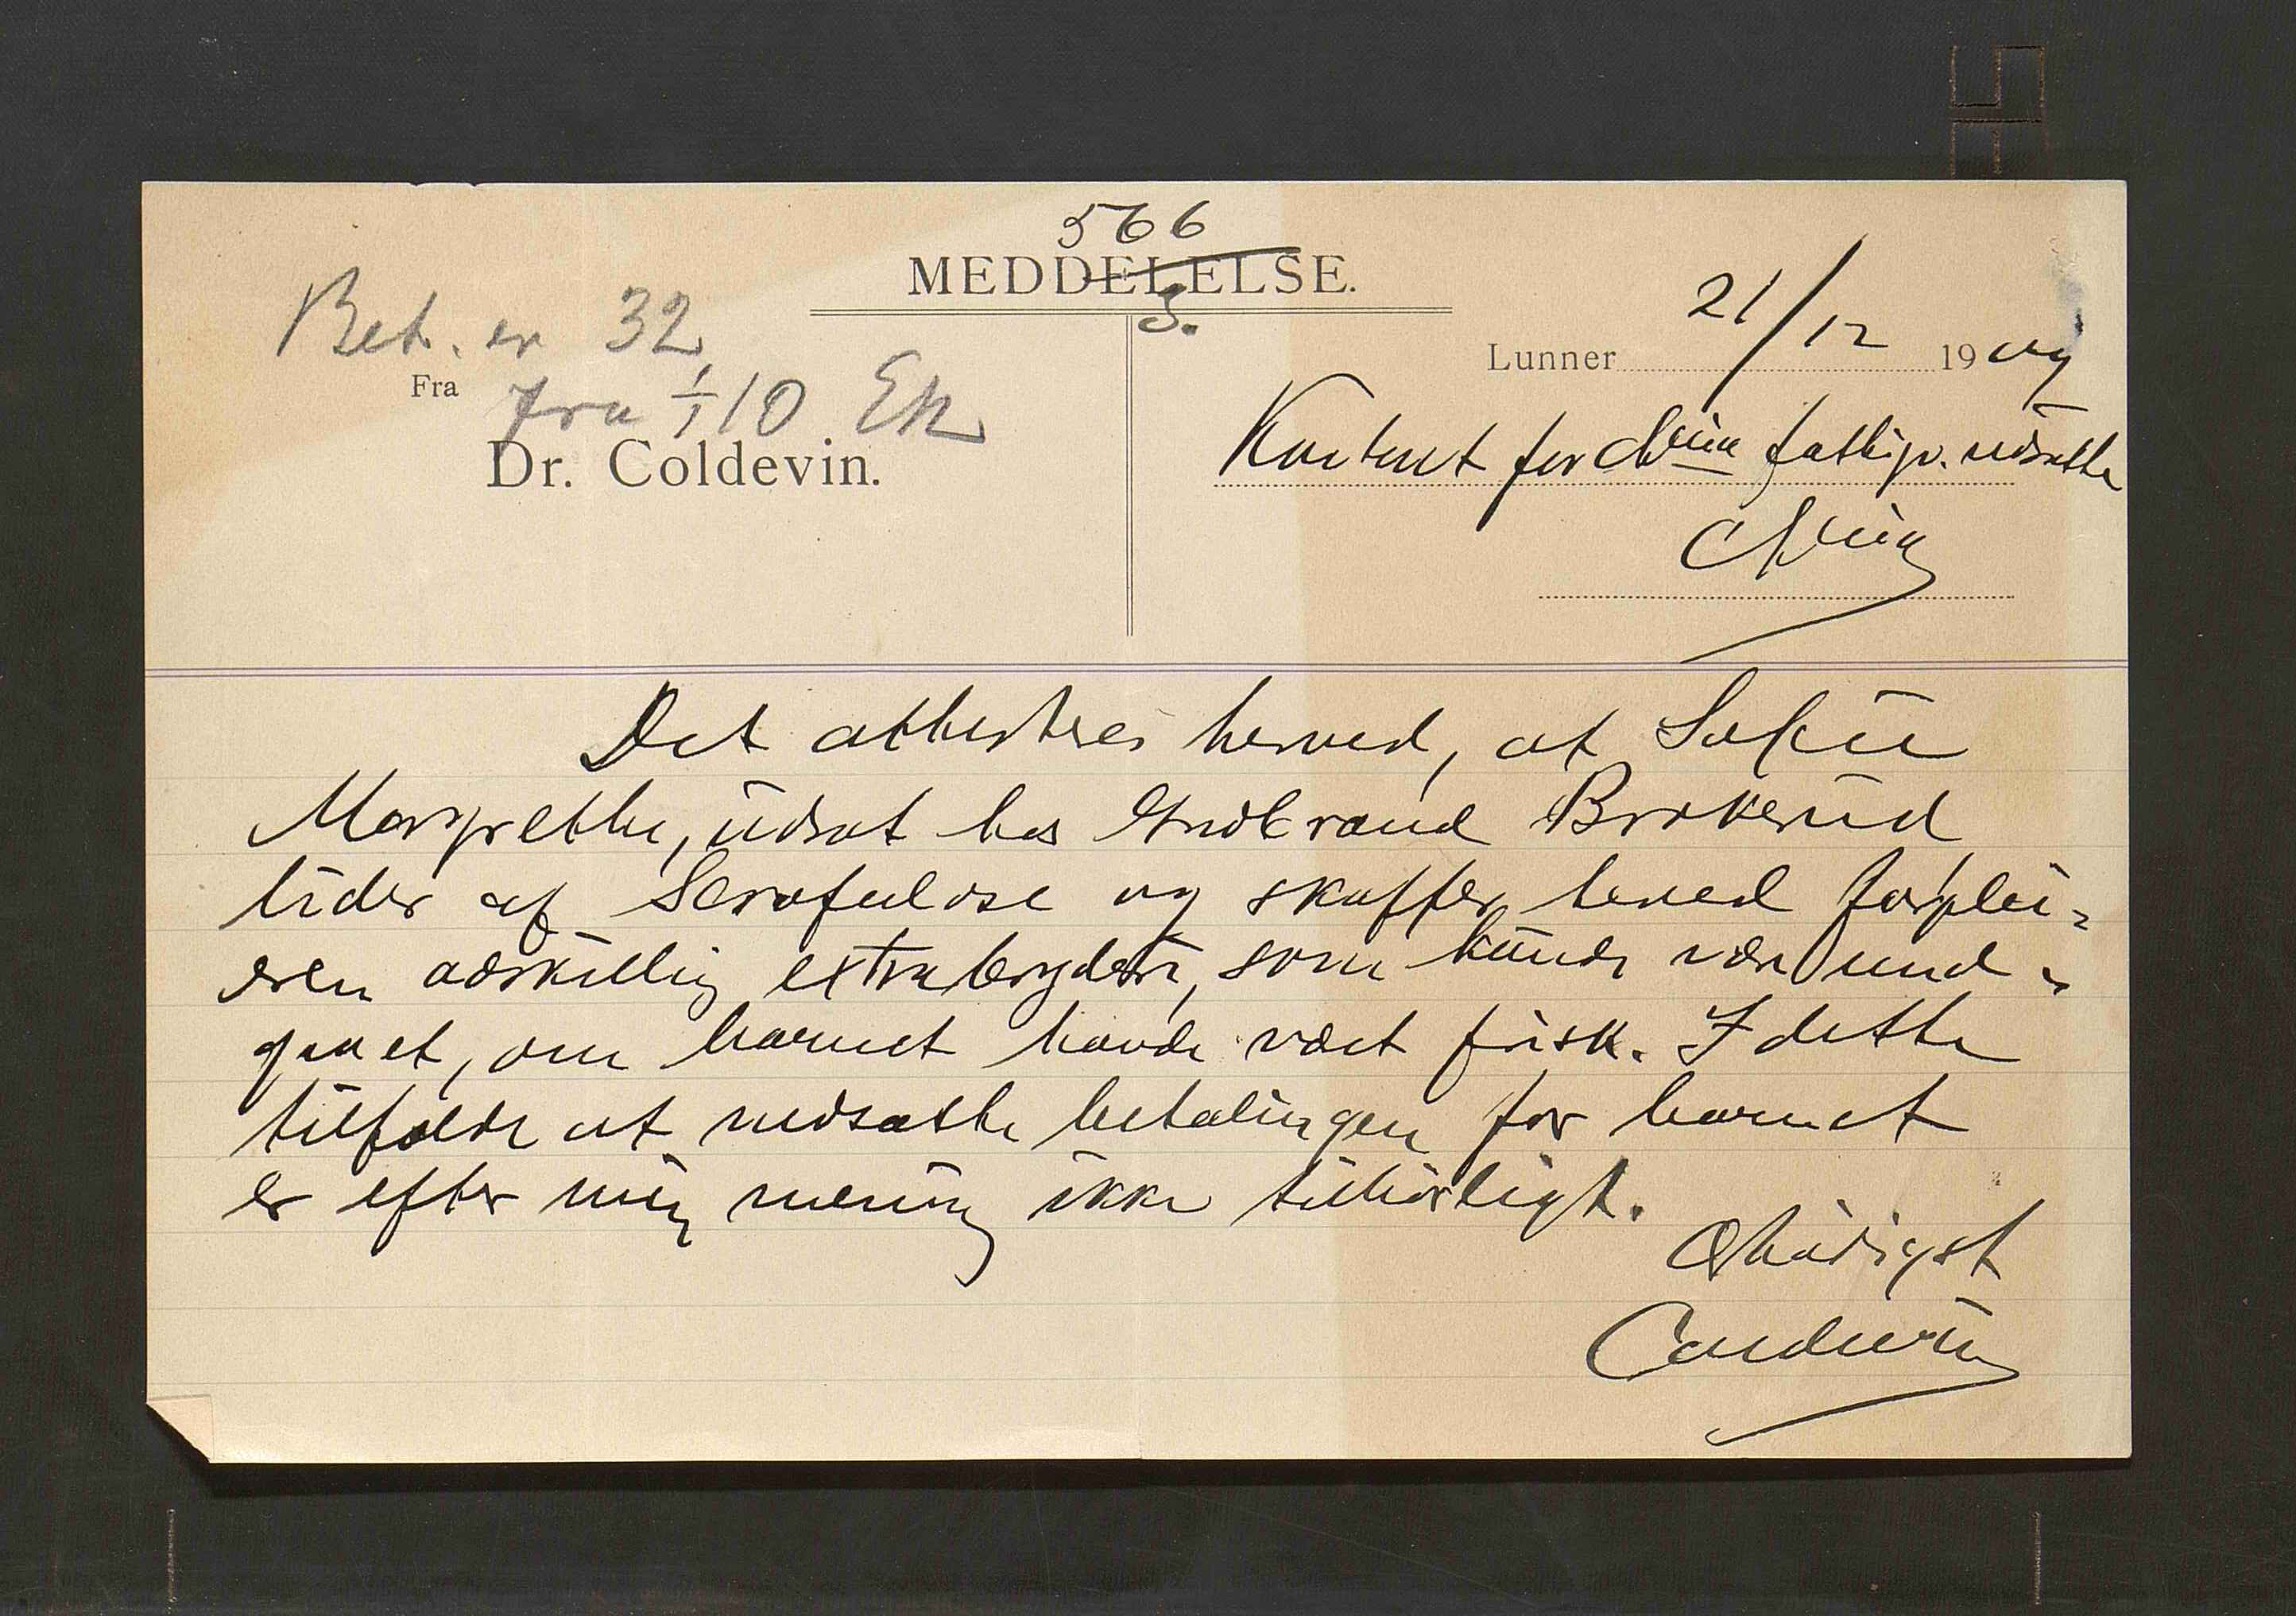 566
MEDDELELSE.
3.
Bet. er 32
Fra
fra 1/1 10 EK
Dr. Coldevin.
Lunner 21/12 1909
Kontoret for fattigv. udsatte
Det attesteres herved, at Sofie
Margrethe, udsat hos Gudbrand Brokerud
lider af Scrofulose og skaffer herved forplei-
eren adskillig extrabryderi, som kunde være und-
gaaet, om barnet havde været frisk. I dette
tilfælde at nedsætte betalingen for barnet
er efter min mening ikke tilbörligt.
Ærbödigst
Coldevin